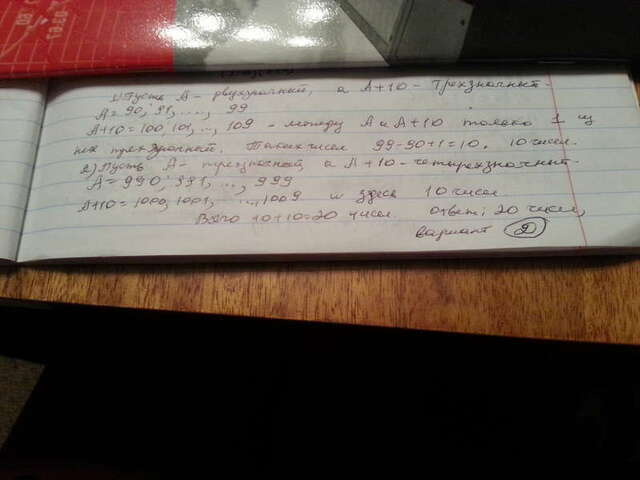 1) Пусть А - двухзначный, а А+10 - трехзначный.
А = 90, 91, ...., 99
А+10 = 100, 101, ..., 109 - между А и А+10 только 1 из
них трехзначный. Таких чисел 99-90+1=10. 10 чисел.
2) Пусть А - трехзначный, а А+10 - четырехзначный.
А = 990, 991, ..., 999
А+10 = 1000, 1001, ..., 1009 и здесь 10 чисел
Всего 10+10=20 чисел. ответ: 20 чисел,
вариант